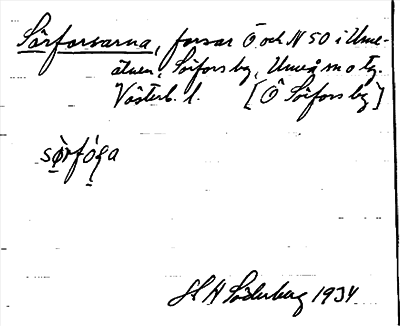 Sörforsarna, forsar Ö och N SO i Ume-
älven, Sörfors by, Umeå sn o tg.
Västerb. l. [Ö Sörfors by]
sørfóṣa
H Söderberg 1934